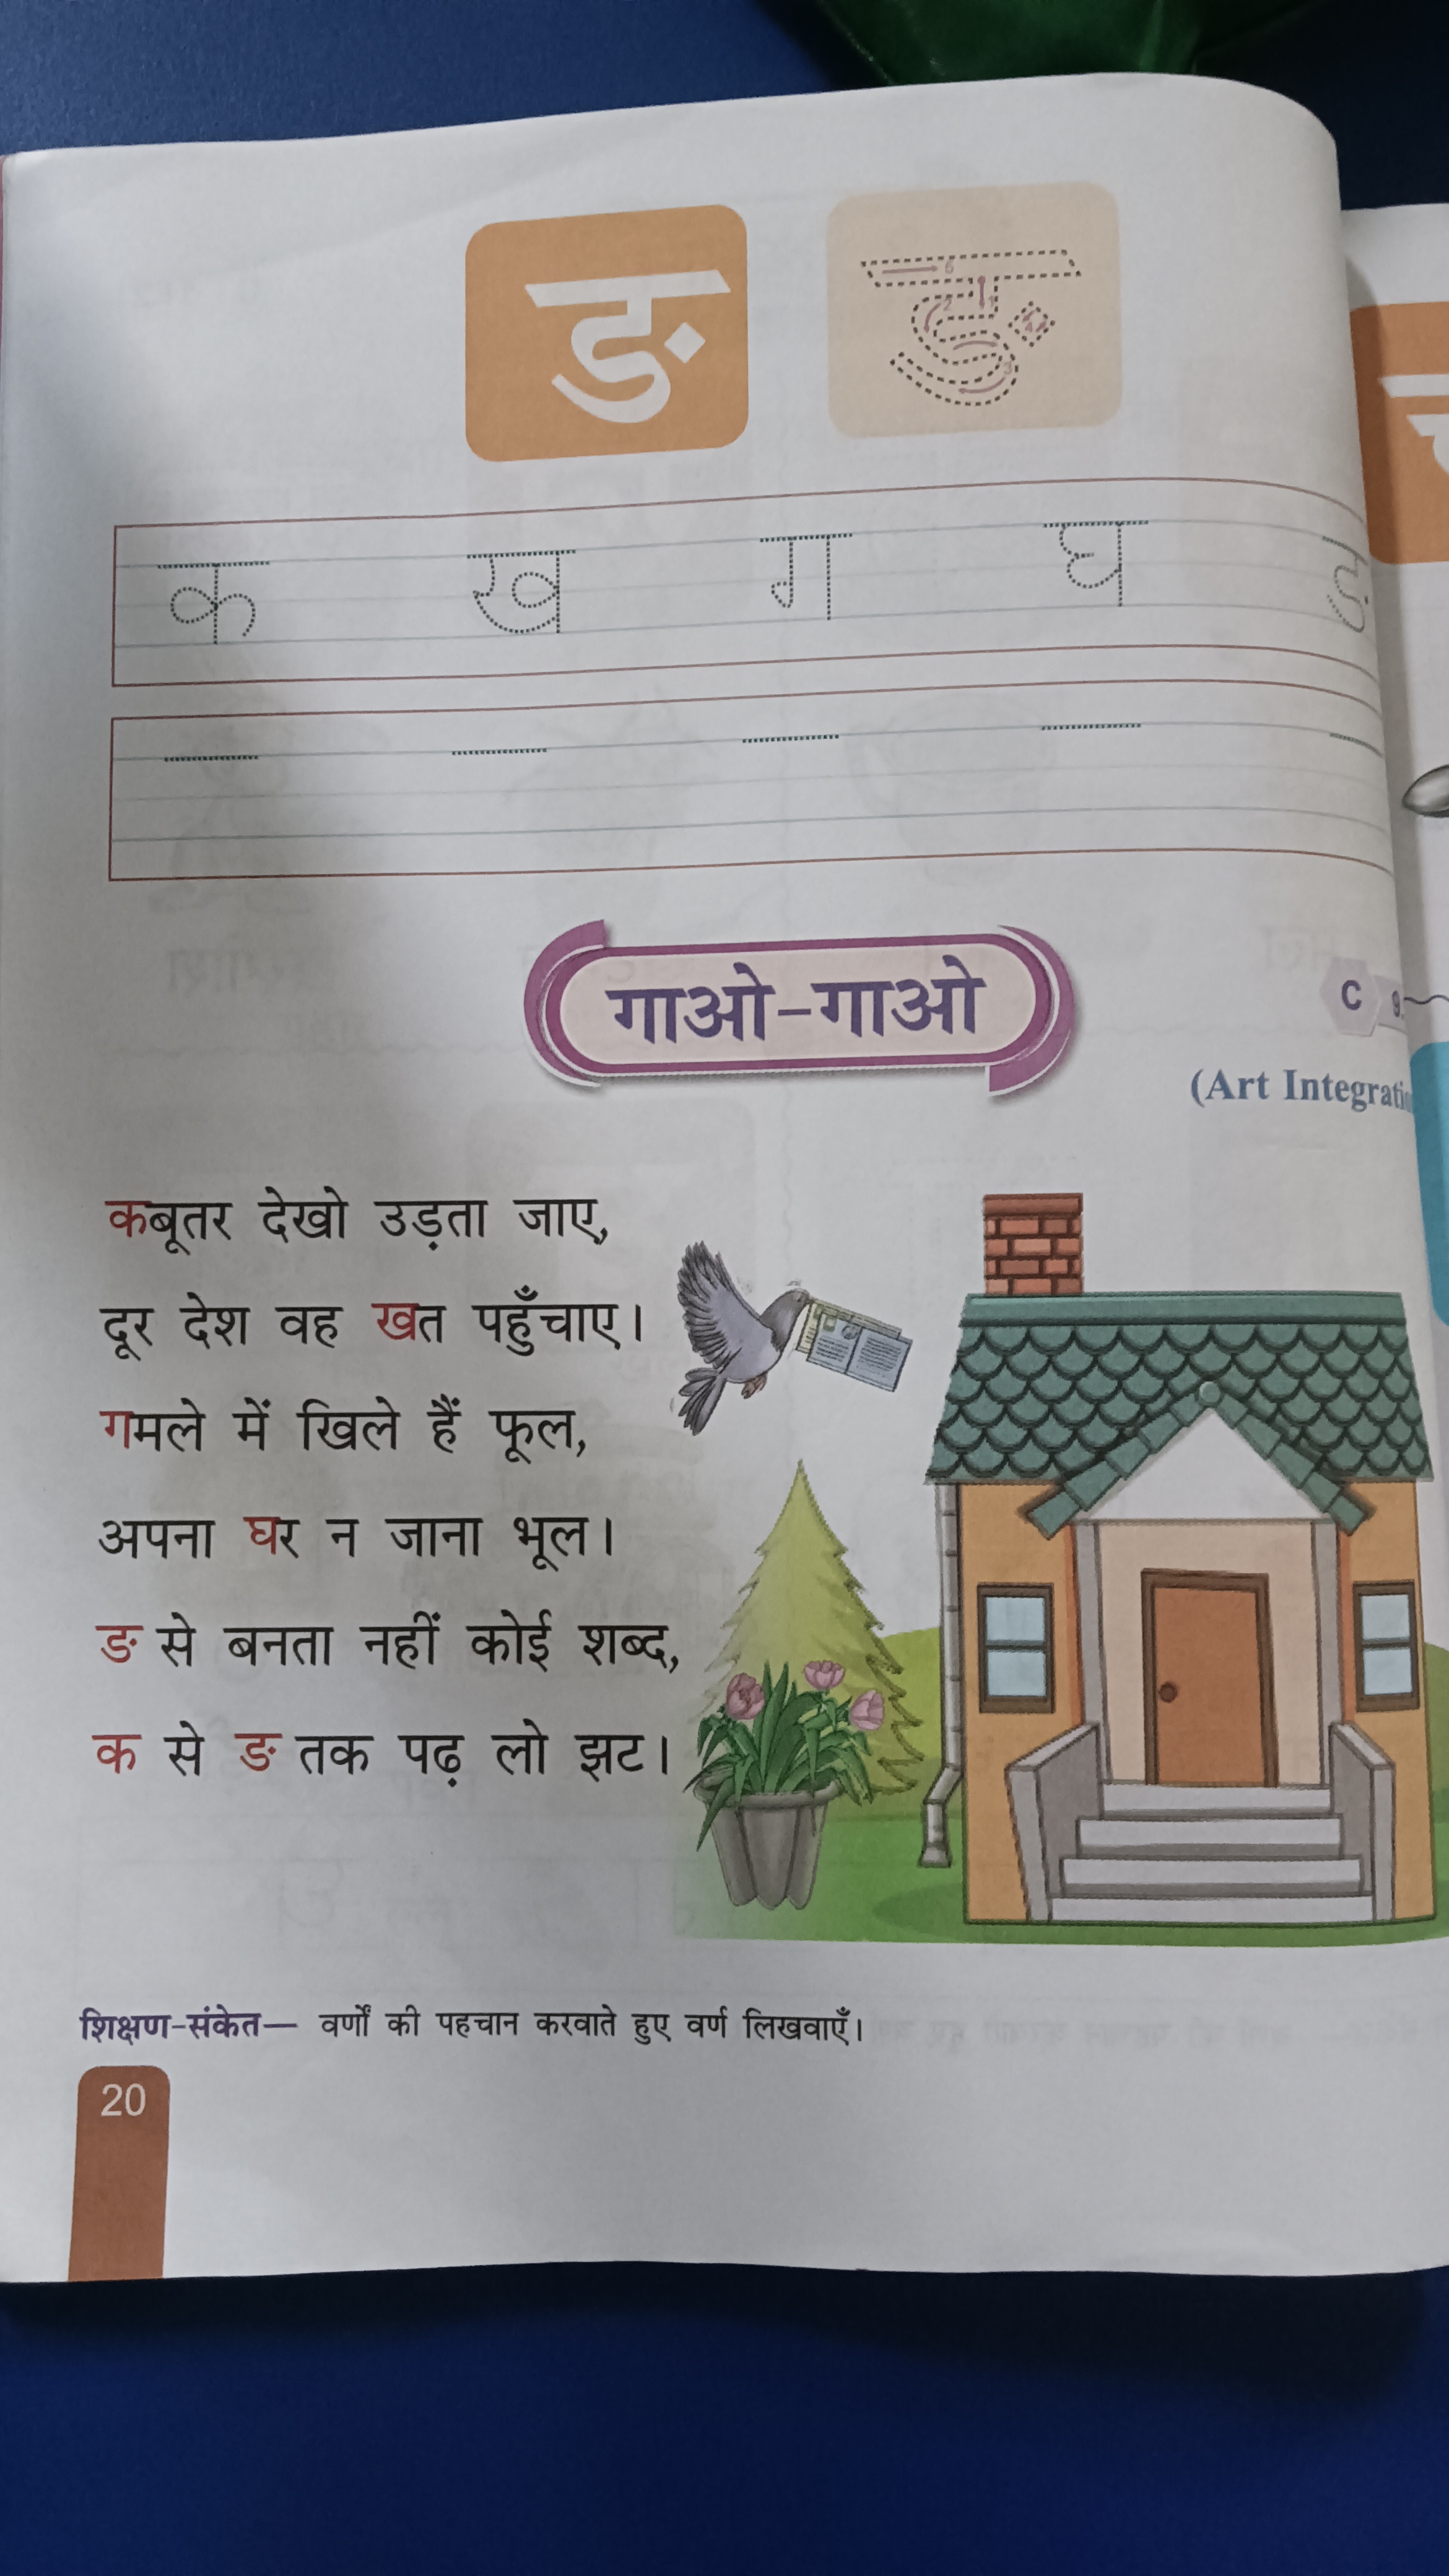 ङ
6 2 1 4 5 3
क ख ग घ ङ
गाओ-गाओ
C
(Art
कबूतर देखो उड़ता जाए,
दूर देश वह खत पहुँचाए।
गमले में खिले हैं फूल,
अपना घर न जाना भूल।
ङ से बनता नहीं कोई शब्द,
क से ङ तक पढ़ लो झट।
शिक्षण-संकेत— वर्णों की पहचान करवाते हुए वर्ण लिखवाएँ।
20